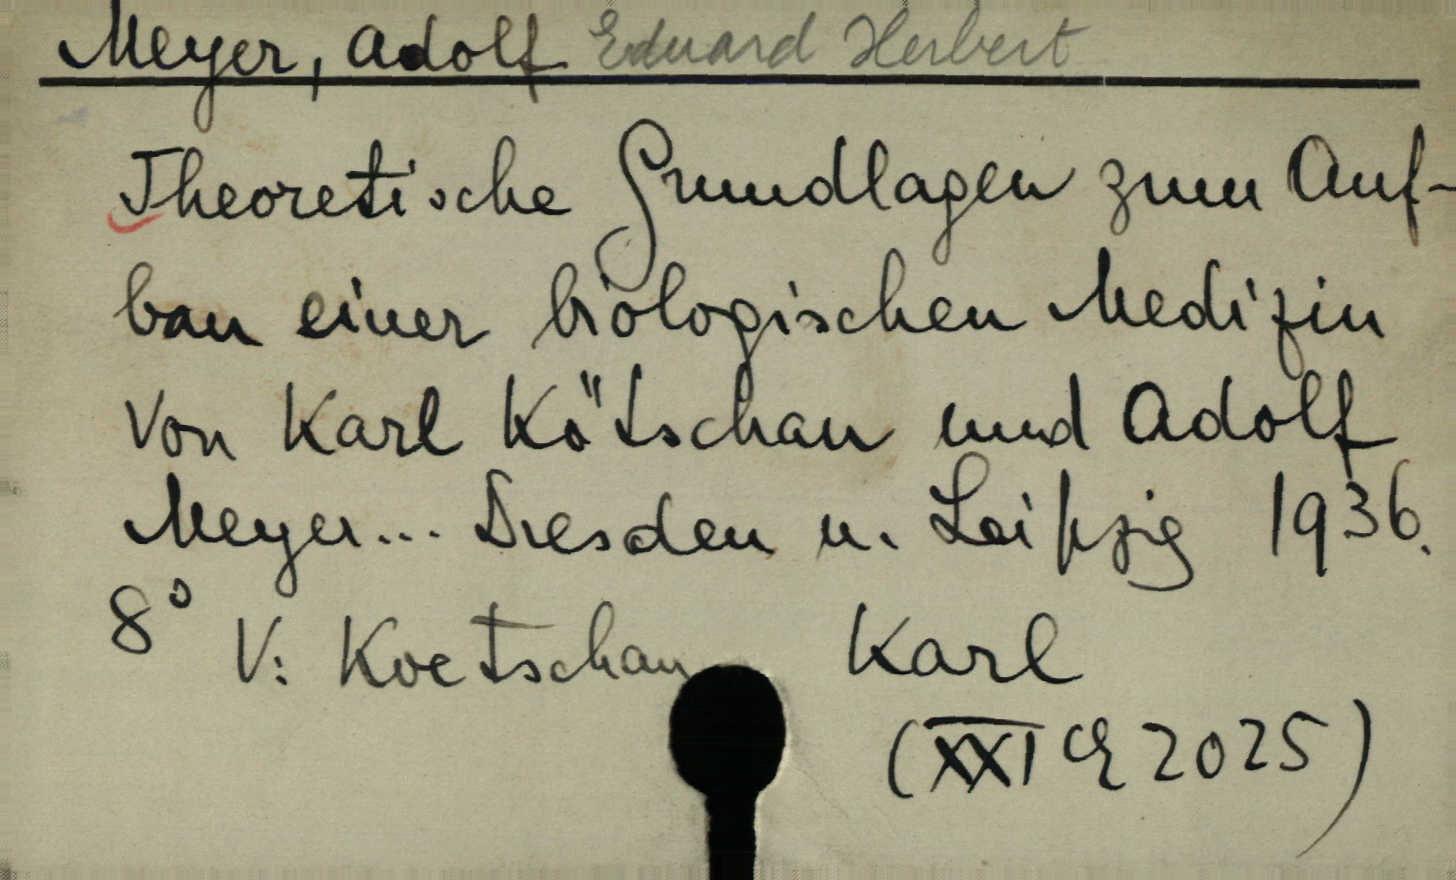 Meyer, Adolf Eduard Herbert
Theoretische Grundlagen zum Auf-
bau einer biologischen Medizin
von Karl Kötschau und Adolf
Meyer... Dresden u. Leipzig 1936.
8° V: Koetschau Karl
(XXI 2025)